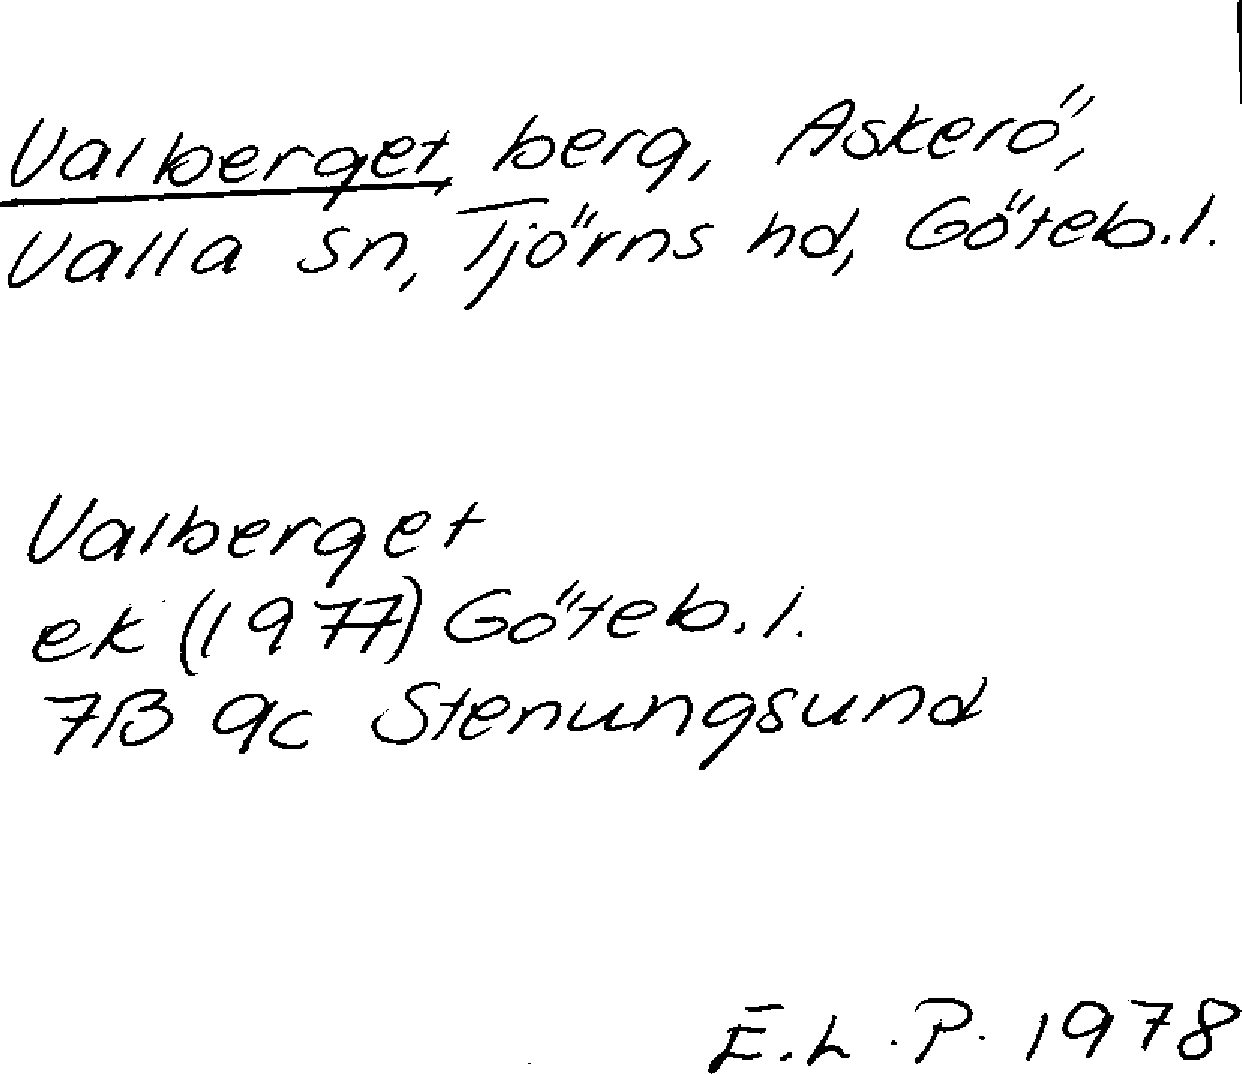 Valberget, berg, Askerö,
Valla sn, Tjörns hd, Göteb.l.
Valberget
ek (1977) Göteb.l.
7B 9c Stenungsund
E.L.P. 1978